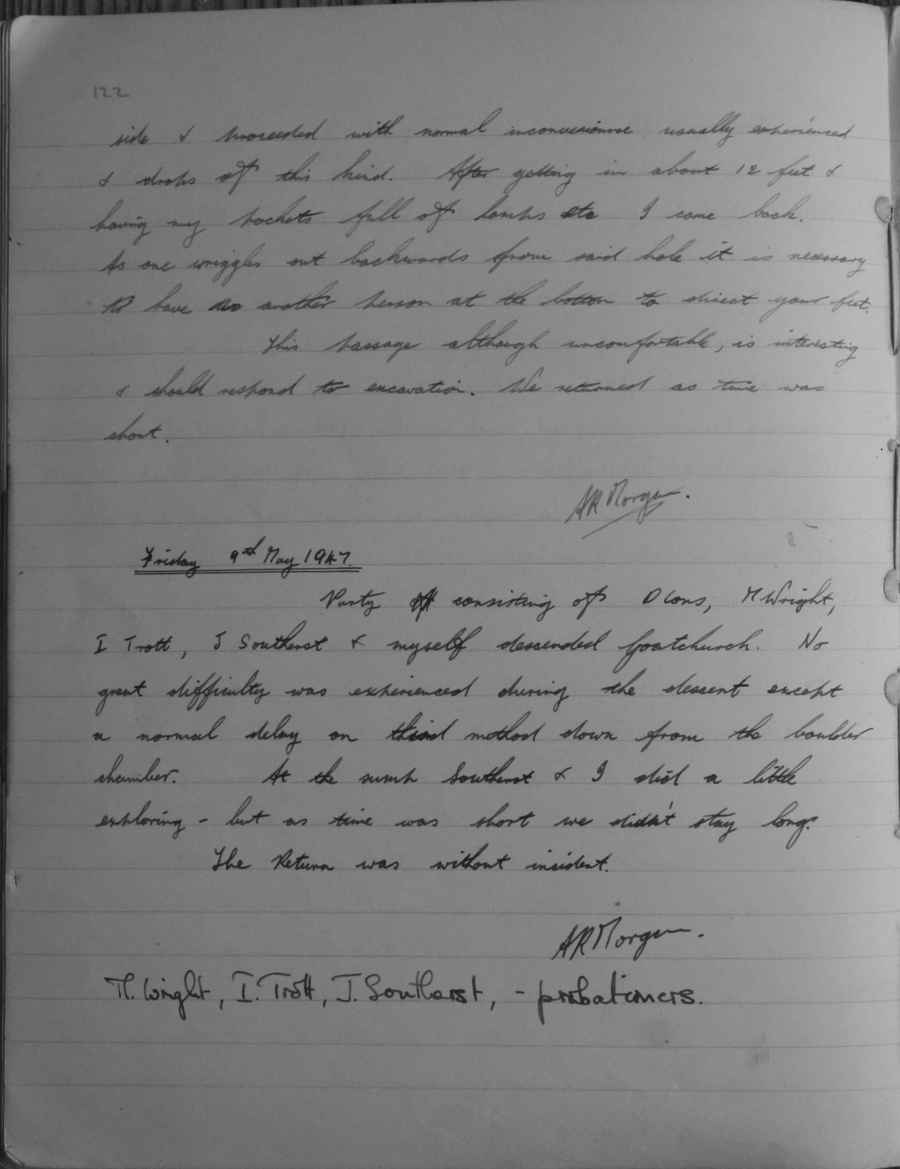 122
side & proceeded with normal inconvenience usually experienced
& drops of this kind. After getting in about 12 feet &
having my pockets full of lamps etc I came back.
As one wriggles out backwards from said hole it is necessary
to have another person at the bottom to direct your feet.
This passage although uncomfortable, is interesting
& should respond to excavation. We returned as time was
short.
AR Morgan.
Friday 9th May 1947.
Party consisting of D Cons, M Wright,
I Trott, J Southerst & myself descended Goatchurch. No
great difficulty was experienced during the descent except
a normal delay on third method down from the boulder
chamber. At the sump Southerst & I did a little
exploring - but as time was short we didn't stay long.
The Return was without incident.
AR Morgan.
M. Wright, I. Trott, J. Southerst, - probationers.